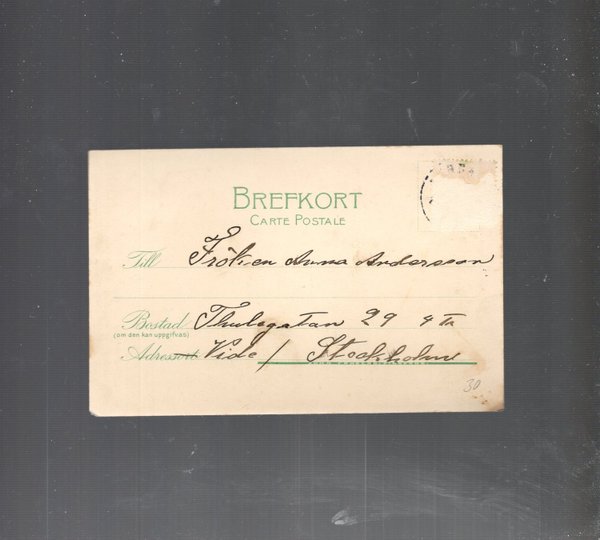 BREFKORT
CARTE POSTALE
Till Fröken Anna Andersson
Bostad Thulegatan 29 4 Tr
(om den kan uppgifvas)
Adressort Stockholm
30